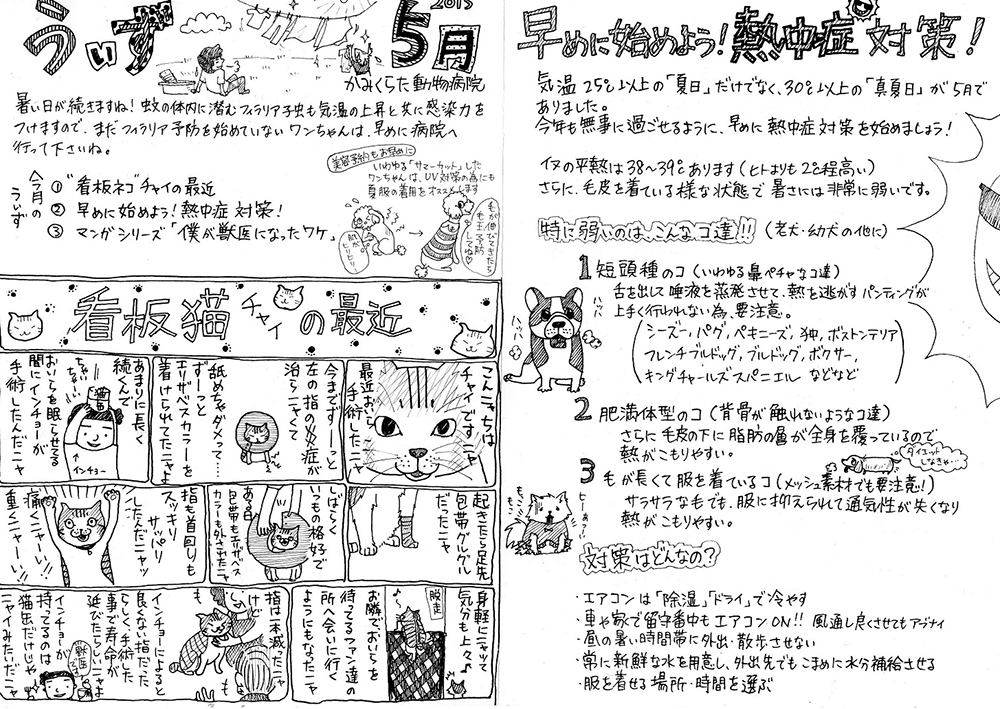 うぃず
2015
5月
かみくらた動物病院
暑い日が続きますね！蚊の体内に潜むフィラリア子虫も気温の上昇と共に感染力を
つけますので、まだフィラリア予防を始めていないワンちゃんは、早めに病院へ
行って下さいね。
美容予約もお早めに
いわゆる「サマーカット」した
ワンちゃんは、UV対策の為にも
夏服の着用をオススメします
今月の
うぃず
① "看板ネコ"チャイの最近
② 早めに始めよう！熱中症対策！
③ マンガシリーズ「僕が獣医になったワケ」
看板猫チャイの最近
こんニャちは
チャイですニャ
最近おいら
手術したニャ
今までずーーっと
左の指の炎症が
治らニャくて
舐めちゃダメって…
ずーーっと
エリザベスカラーを
着けられてたニャよ
あまりに長く
続くんで
おいらを眠らせてる
間にインチョーが
手術したんだニャ
インチョー
起きたら足先
包帯グルグル
だったニャ
しばらく
いつもの格好で
ある日
包帯もエリザベス
カラーも外されたニャ
指も首回りも
スッキリ
サッパリ
したんだニャッ
痛くニャーい!!
重くニャーい!!
身軽にニャッて
気分も上々♪
脱走
お隣でおいらを
待ってるファン達の
所へ会いに行く
ようにもなったニャ
指は一本減ったニャ
けど
インチョーによると
良くない指だった
らしく、手術した
事で寿命が
延びたらしいニャよ
インチョーが
持ってるのは
猫缶だけじゃ
ニャイみたいだニャ
獣医
早めに始めよう！熱中症対策！
気温25℃以上の「夏日」だけでなく、30℃以上の「真夏日」が5月で
ありました。
今年も無事に過ごせるように、早めに熱中症対策を始めましょう！
イヌの平熱は38～39℃あります（ヒトよりも2℃程高い）
さらに、毛皮を着ている様な状態で暑さには非常に弱いです。
特に弱いのは、こんなコ達!! （老犬・幼犬の他に）
1 短頭種のコ（いわゆる鼻ペチャなコ達）
舌を出して唾液を蒸発させて、熱を逃がすパンティングが
上手く行われない為、要注意。
（シーズー，パグ，ペキニーズ，狆，ボストンテリア
フレンチブルドッグ，ブルドッグ，ボクサー，
キングチャールズスパニエル などなど）
ハッハッ
ハッハッ
2 肥満体型のコ（背骨が触れないようなコ達）
さらに毛皮の下に脂肪の層が全身を覆っているので
熱がこもりやすい。
ダイエット
しなきゃ…
3 毛が長くて服を着ているコ（メッシュ素材でも要注意！）
サラサラな毛でも、服に抑えられて通気性が失くなり
熱がこもりやすい。
対策はどんなの？
・エアコンは「除湿」「ドライ」で冷やす
・車や家で留守番中もエアコンON!! 風通し良くさせてもアブナイ
・昼の暑い時間帯に外出・散歩させない
・常に新鮮な水を用意し、外出先でもこまめに水分補給させる
・服を着せる場所・時間を選ぶ